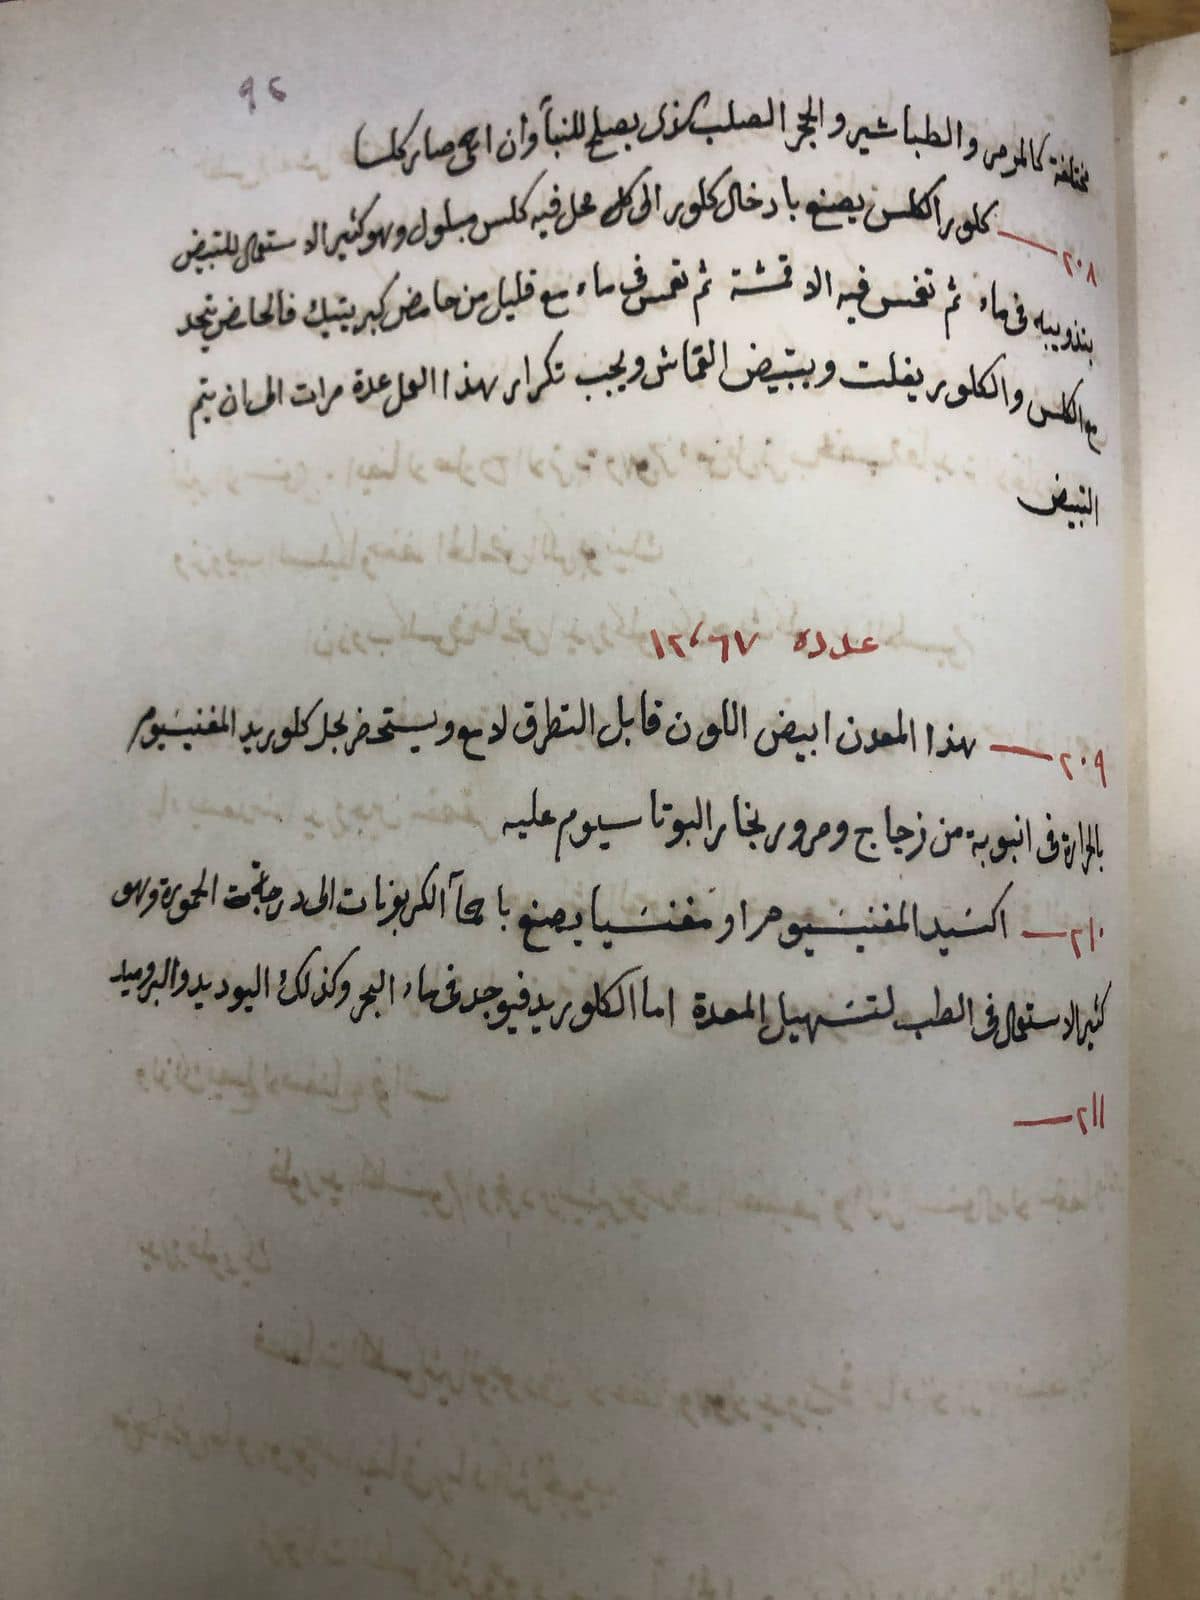 ٩٤
مختلفة كالمرمر والطباشير والحجر الصلب الذى يصلح للبنآ وان احمى صار كلسا
٢٠٨— كلور الكلس يصنع بادخال كلور الى كل محل فيه كلس مبلول وهو كثير الاستعمال للتبيض
بتذويبه فى ماء ثم تغمس فيه الاقمشة ثم تغمس فى ماء مع قليل من حامض كبريتيك فالحامض يتحد
مع الكلس والكلور يفلت ويبيض القماش ويجب تكرار هذا العمل عدة مرات الى ان يتم
التبيض
عدده ١٢٬٦٧
٢٠٩— هذا المعدن ابيض اللون قابل التطرق لامع ويستحضر بحل كلوريد المغنيسيوم
بالحرارة فى انبوبة من زجاج ومرور بخار البوتاسيوم عليه
٢١٠— اكسيد المغنيسيوم او مغنسيا يصنع باحمآ الكربونات الى درجة الحمورة وهو
كثير الاستعمال فى الطب لتسهيل المعدة اما الكلوريد فيوجد فى ماء البحر وكذلك اليوديد والبروميد
٢١١—